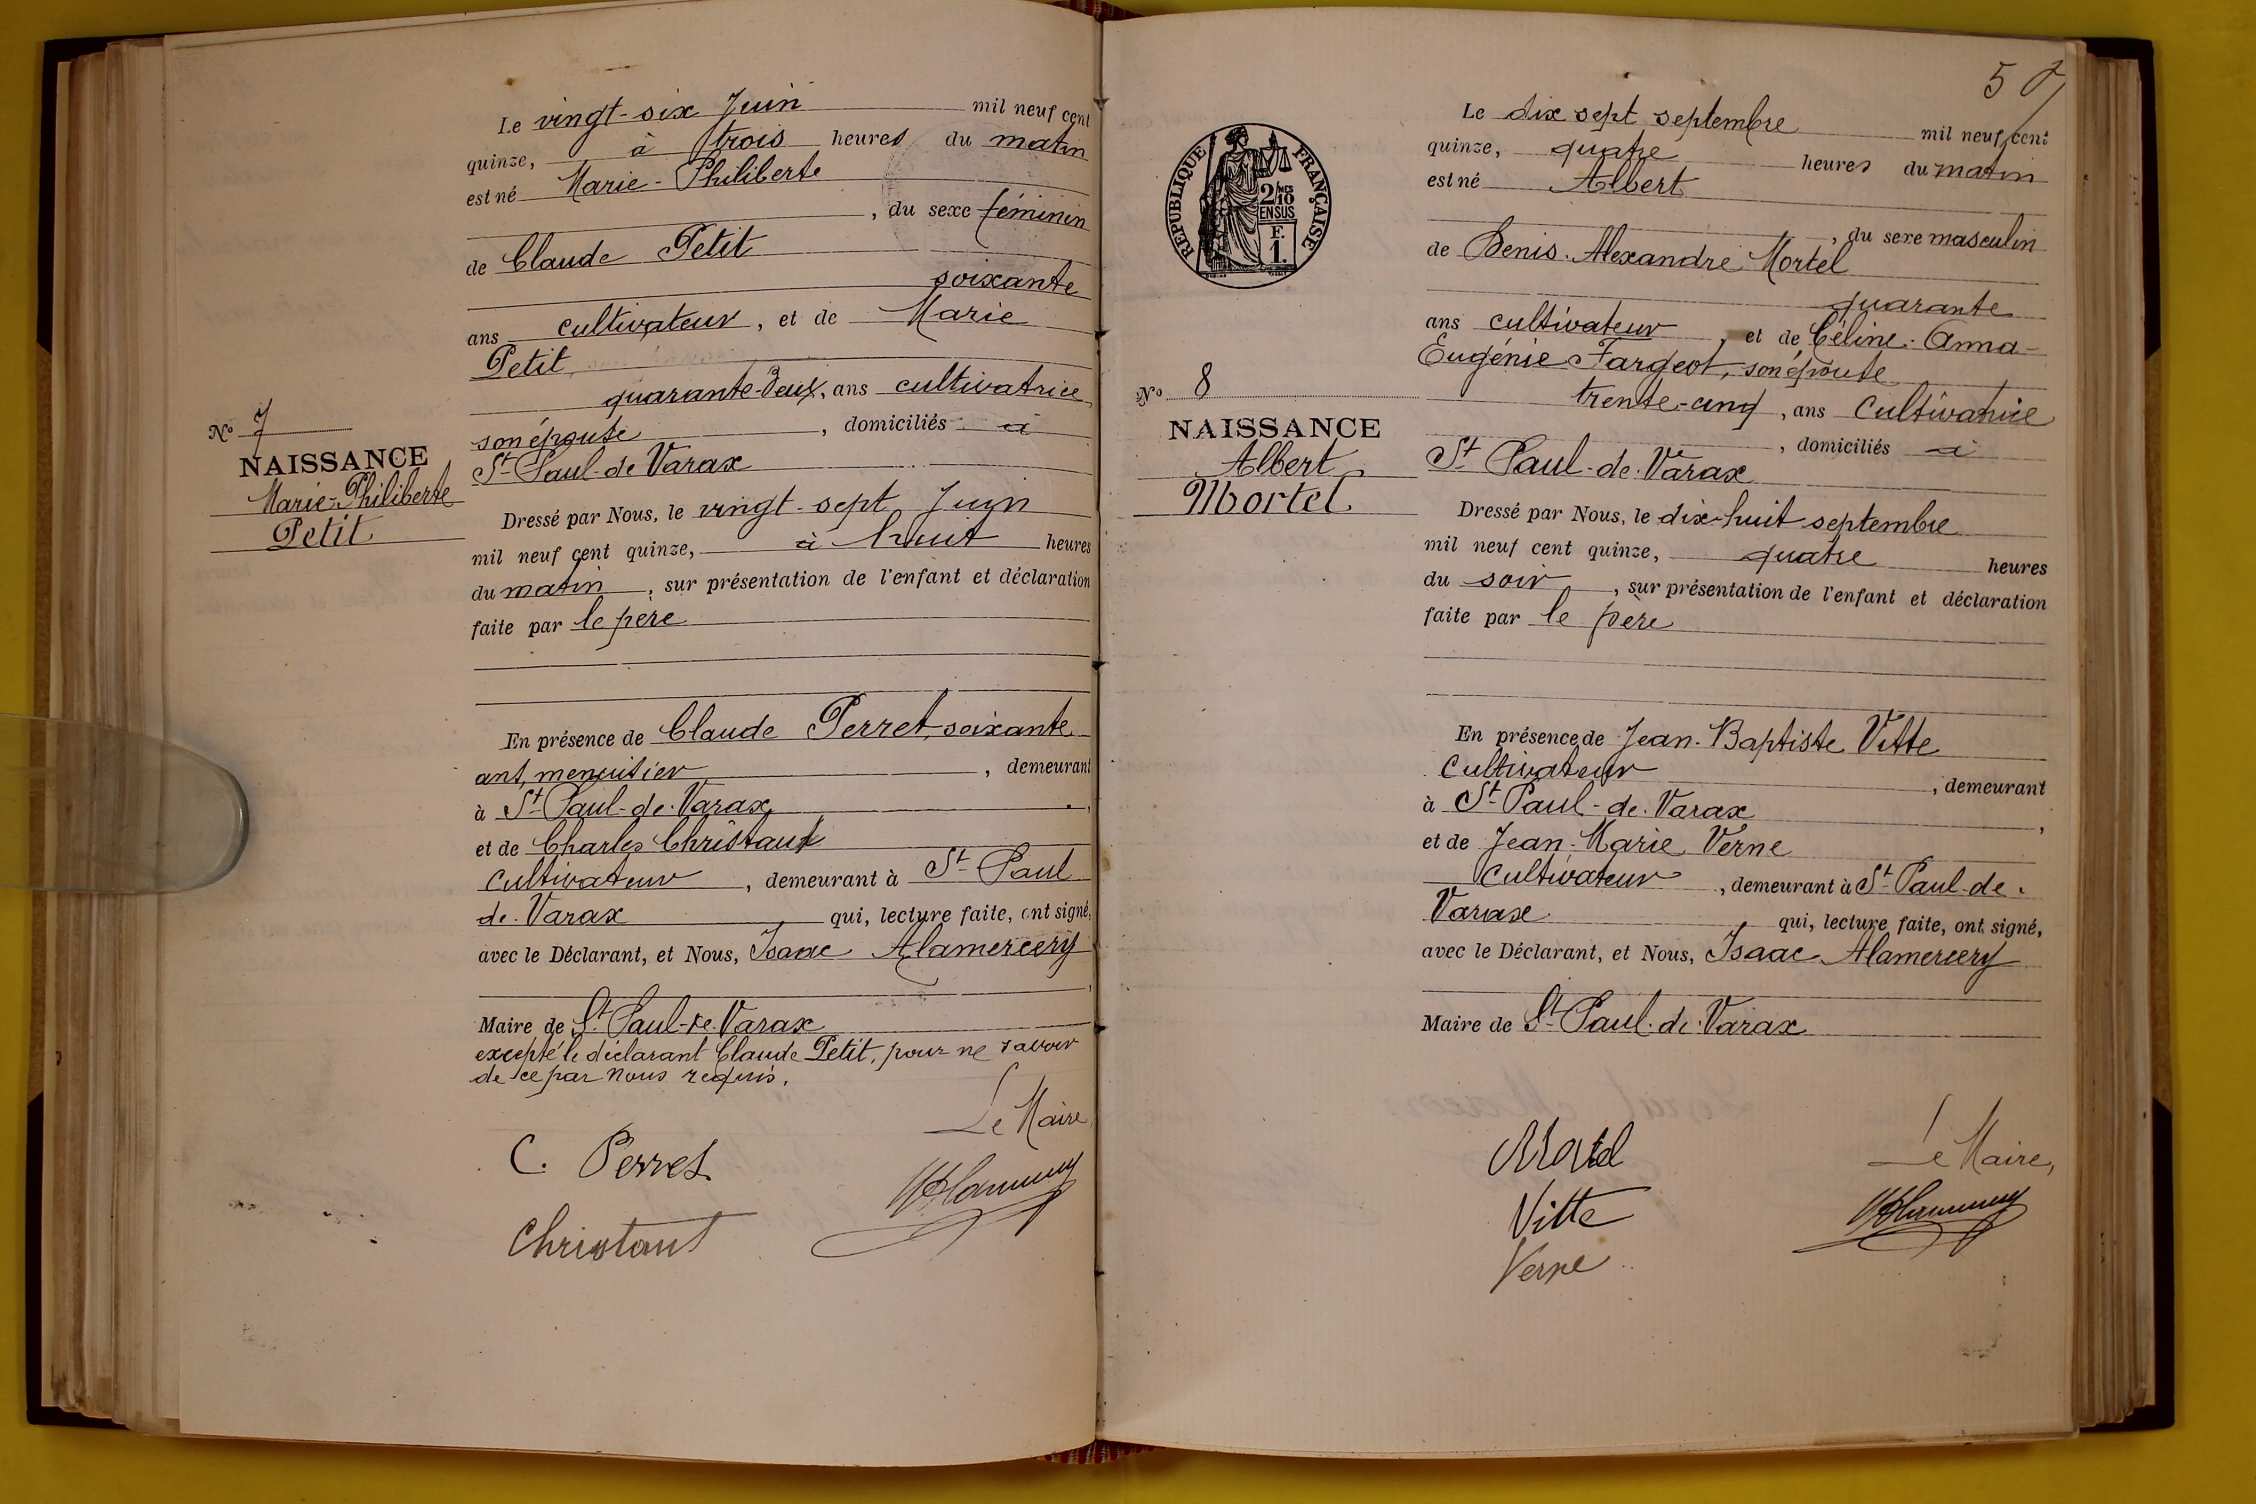 Le vingt-six Juin mil neuf cent
quinze, à trois heures du matin
est né Marie-Philiberte
, du sexe féminin
de Claude Petit
soixante
ans cultivateur, et de Marie
Petit
quarante-deux, ans cultivatrice
son épouse, domiciliés à
St Paul-de-Varax
No 7
NAISSANCE
Marie-Philiberte
Petit
Dressé par Nous, le vingt-sept Juin
mil neuf cent quinze, à huit heures
du matin, sur présentation de l'enfant et déclaration
faite par le père
En présence de Claude Perret, soixante
ans, menuisier, demeurant
à St Paul-de-Varax,
et de Charles Christaut
Cultivateur, demeurant à St Paul
de-Varax qui, lecture faite, ont signé,
avec le Déclarant, et Nous, Isaac Alamercery
Maire de St Paul-de-Varax
excepté le déclarant Claude Petit, pour ne savoir
de ce par nous requis.
Le Maire
C. Perret
Christaut
5
REPUBLIQUE FRANÇAISE
2/10 MES
EN SUS
F.
1.
Le dix sept septembre mil neuf cent
quinze, quatre heures du matin
est né Albert
, du sexe masculin
de Denis-Alexandre Mortel
quarante
ans cultivateur, et de Céline-Anna-
Eugénie Fargeot, son épouse
trente-cinq, ans Cultivatrice
, domiciliés à
St Paul-de-Varax
No 8
NAISSANCE
Albert
Mortel
Dressé par Nous, le dix-huit septembre
mil neuf cent quinze, quatre heures
du soir, sur présentation de l'enfant et déclaration
faite par le père
En présence de Jean-Baptiste Vitte
Cultivateur, demeurant
à St Paul-de-Varax,
et de Jean-Marie Verne
Cultivateur, demeurant à St Paul-de-
Varax qui, lecture faite, ont signé,
avec le Déclarant, et Nous, Isaac Alamercery
Maire de St Paul-de-Varax
Le Maire,
Mortel
Vitte
Verne